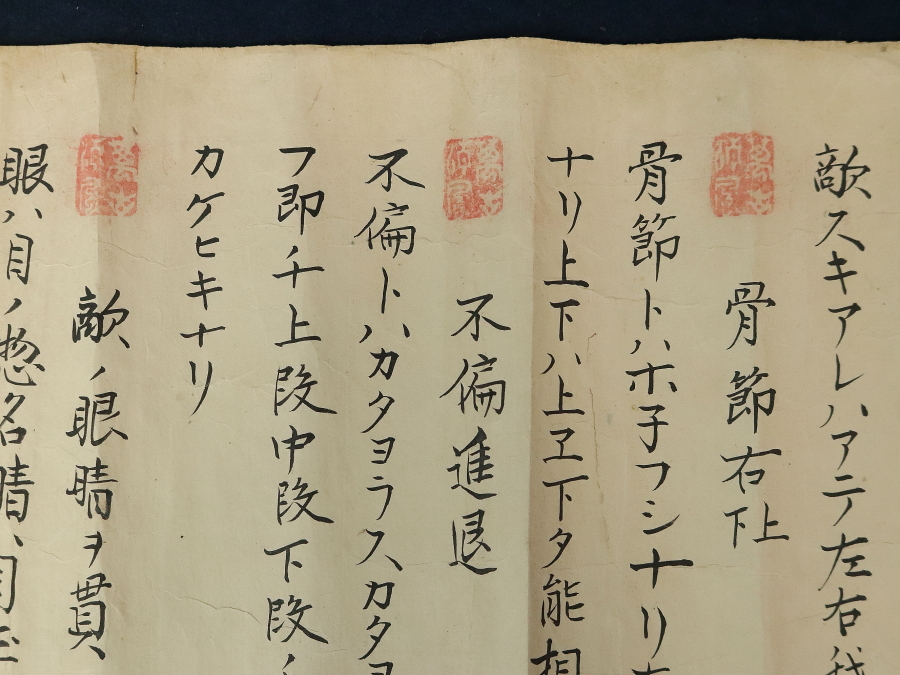 敵スキアレハアテ左右
骨節右上下
骨節トハホ子フシナリ
ナリ上下ハ上ヱ下タ能相
不偏進退
不偏トハカタヨラスカタヨ
フ即ノ千上段中段下段ノ
カケヒキナリ
敵ノ眼晴ヲ貫
眼ハ目ノ惣名晴ハ